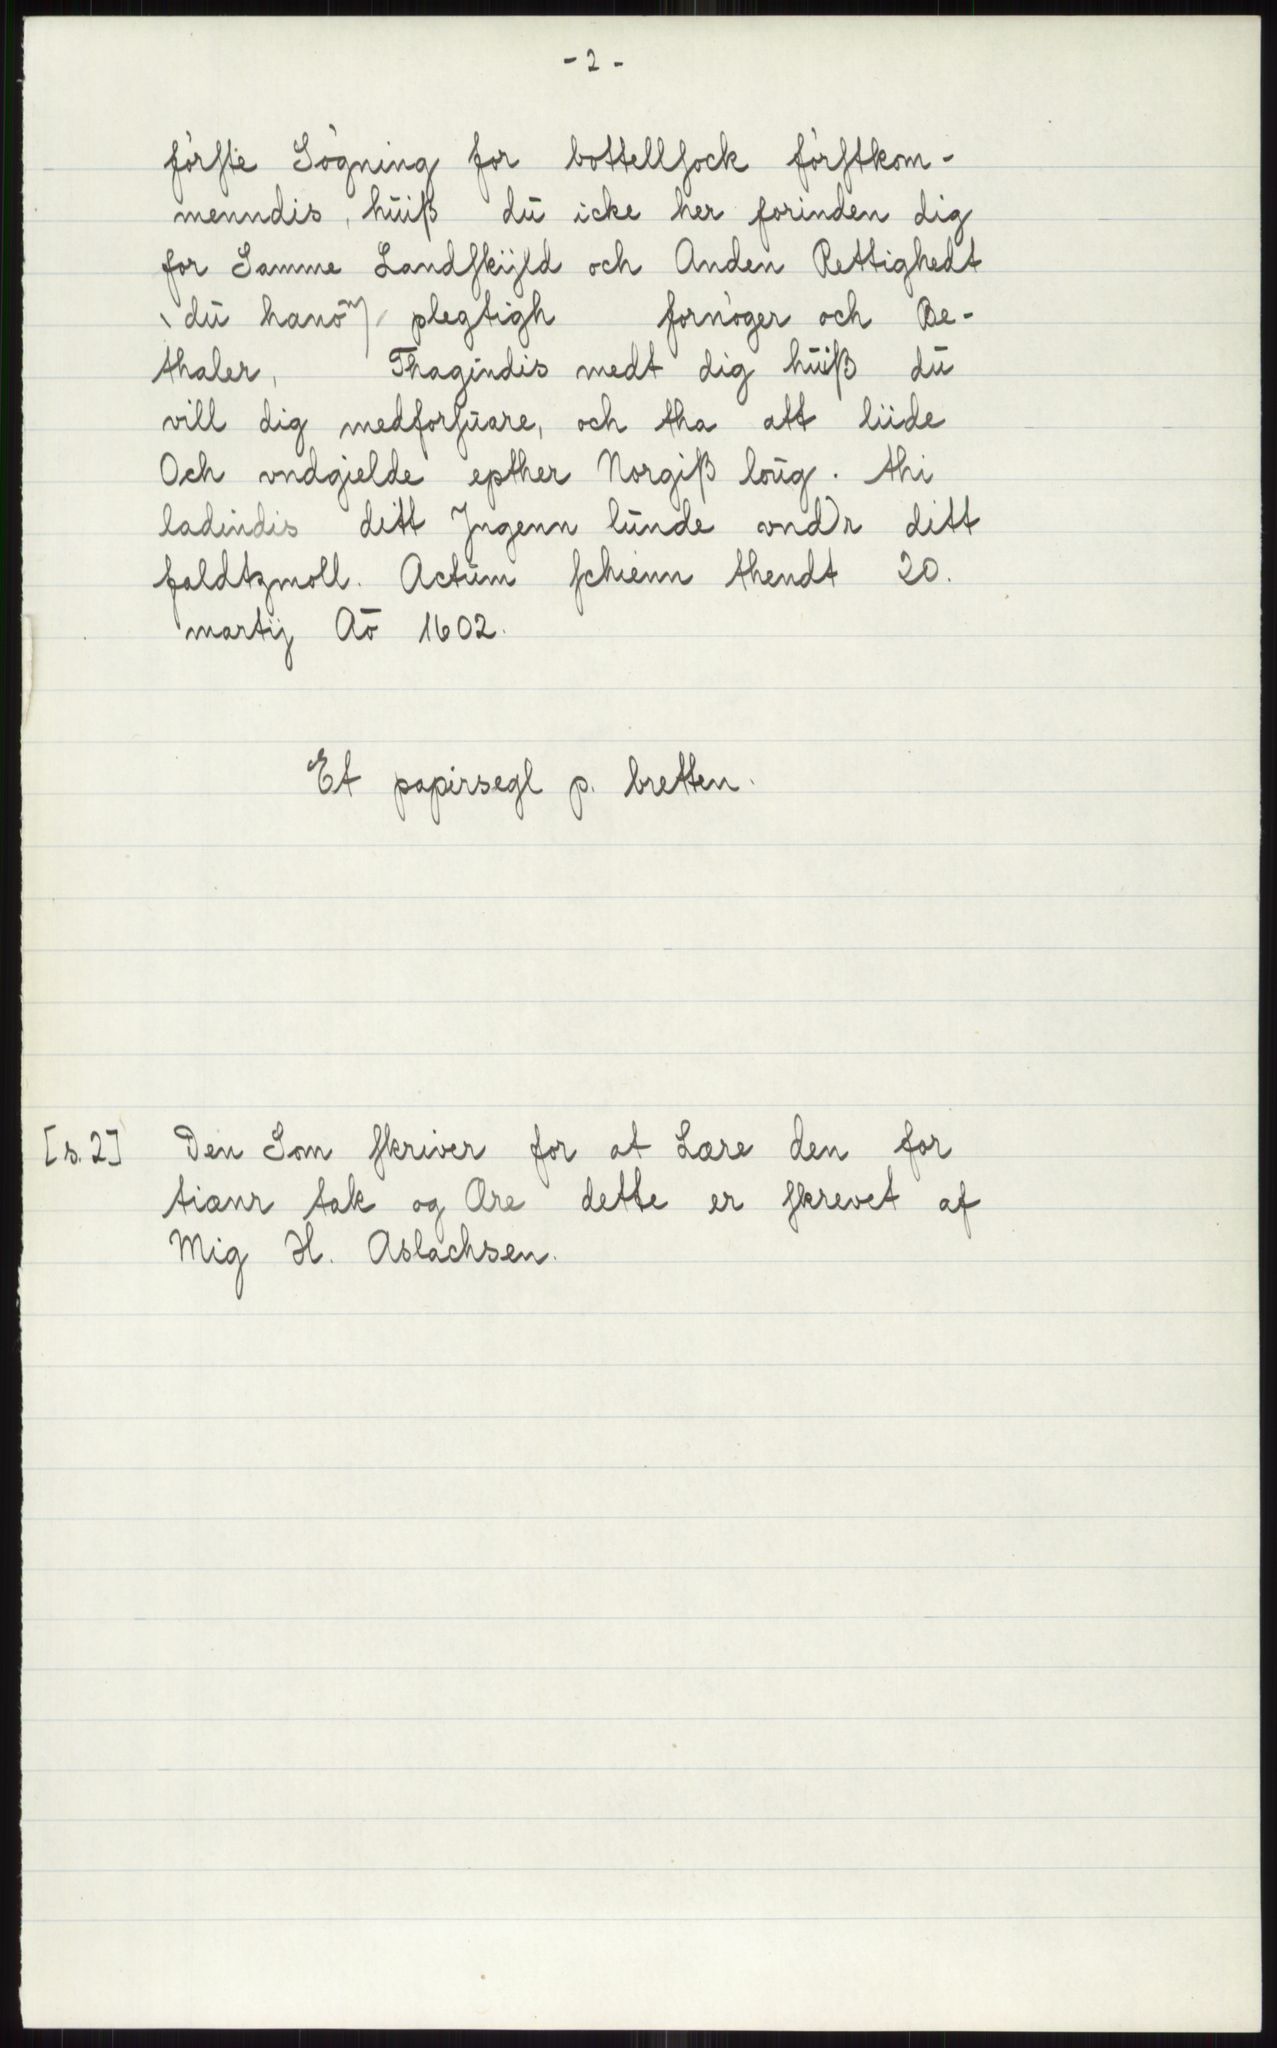 - 2 -
förſte Sögning for bottellſock förſtkom-
menndis, hūiß dū icke her forinden dig
for Samme Landſkÿld och Anden Rettighedt
dū hanō plegtigh fornöger och Be-
thaler, Thagindis medt dig hūiß dū
vill dig medforſūare, och tha att liide
Och vndgielde epther Norgiß loūg. thi
ladindis ditt Jngenn lūnde vndr ditt
faldtzmoll. Actūm ſchienn thendt 20.
martij Aō 1602.
Et papirsegl p. bretten.
[s. 2] Den Som ſkriver for at Lære den for
tiænr tak og Ære dette er ſkrevet af
Mig H. Aslachsen.